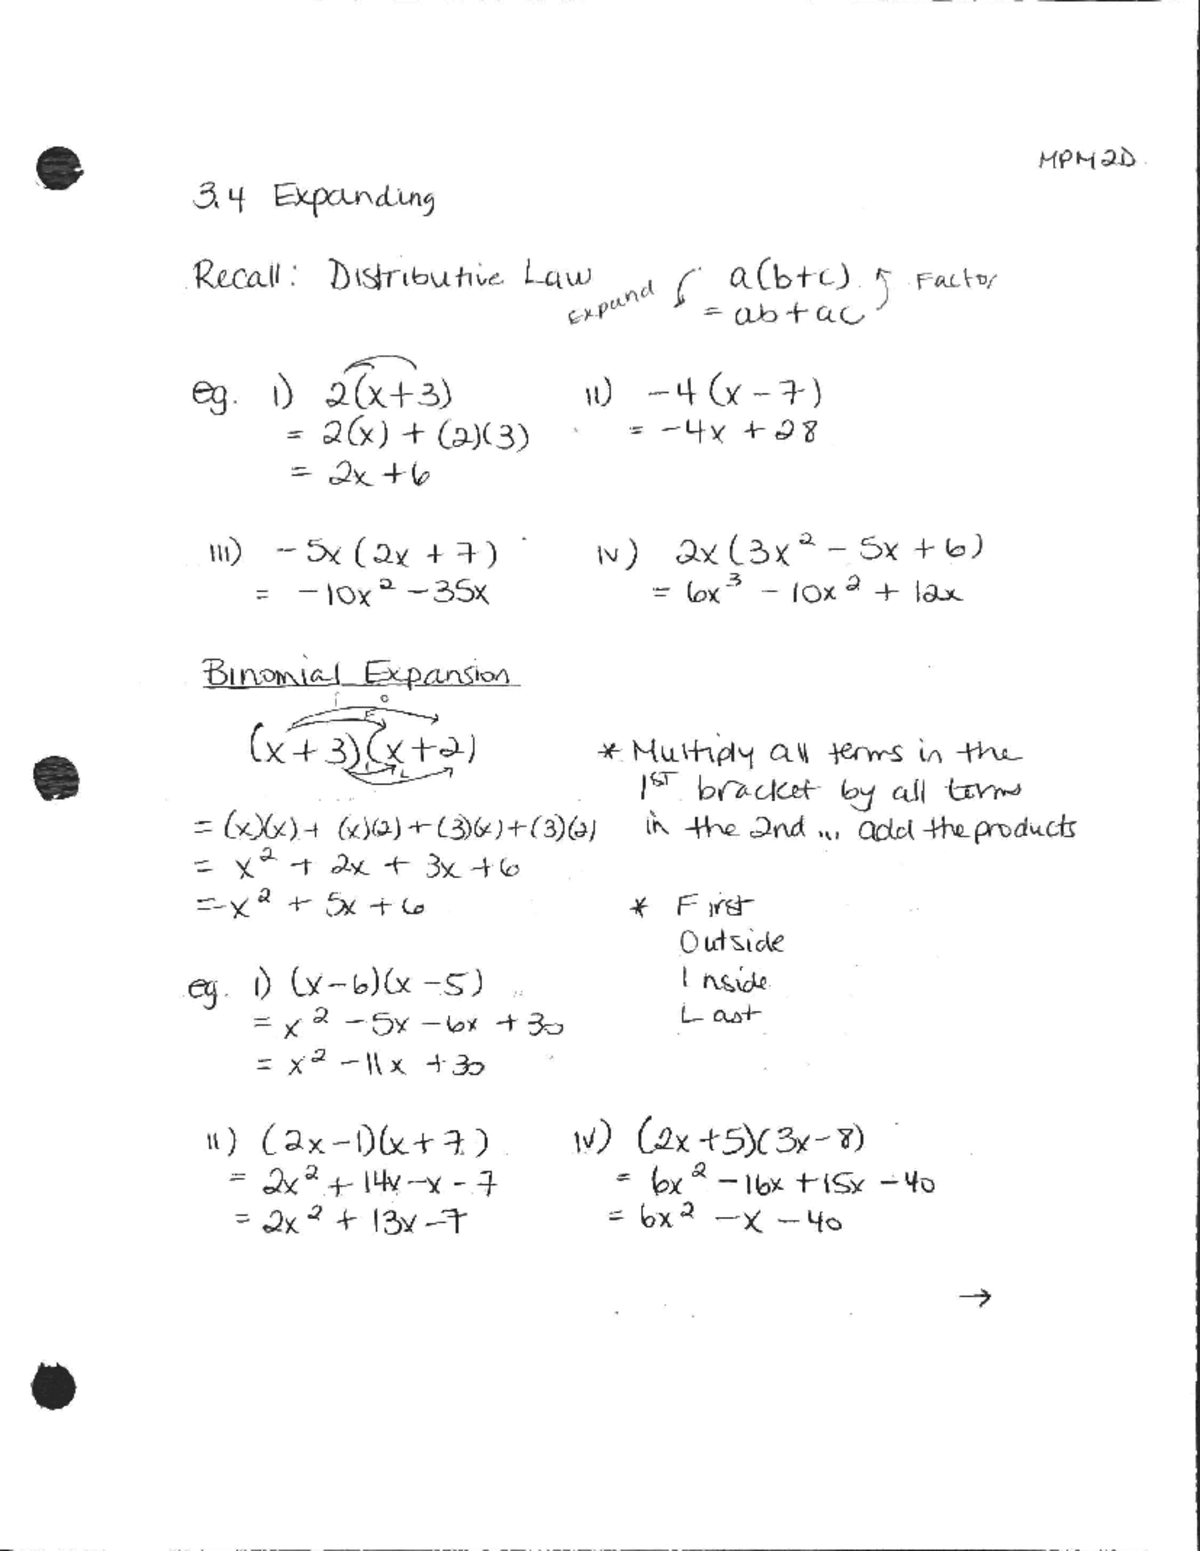 MPM2D
3.4 Expanding
Recall: Distributive Law
Expand
a(b+c)
= ab+ac
Factor
eg. i) 2(x+3)
= 2(x) + (2)(3)
= 2x +6
ii) -4(x-7)
= -4x + 28
iii) -5x(2x + 7)
= -10x² -35x
iv) 2x(3x² - 5x + 6)
= 6x³ - 10x² + 12x
Binomial Expansion
F O
I L
(x+3)(x+2)
= (x)(x)+ (x)(2)+(3)(x)+(3)(2)
= x² + 2x + 3x +6
= x² + 5x +6
* Multiply all terms in the
1ST bracket by all terms
in the 2nd ... add the products
* First
Outside
Inside
Last
eg. i) (x-6)(x-5)
= x² -5x -6x +30
= x² -11x +30
ii) (2x-1)(x+7)
= 2x² + 14x -x - 7
= 2x² + 13x -7
iv) (2x+5)(3x-8)
= 6x² -16x +15x -40
= 6x² -x -40
→